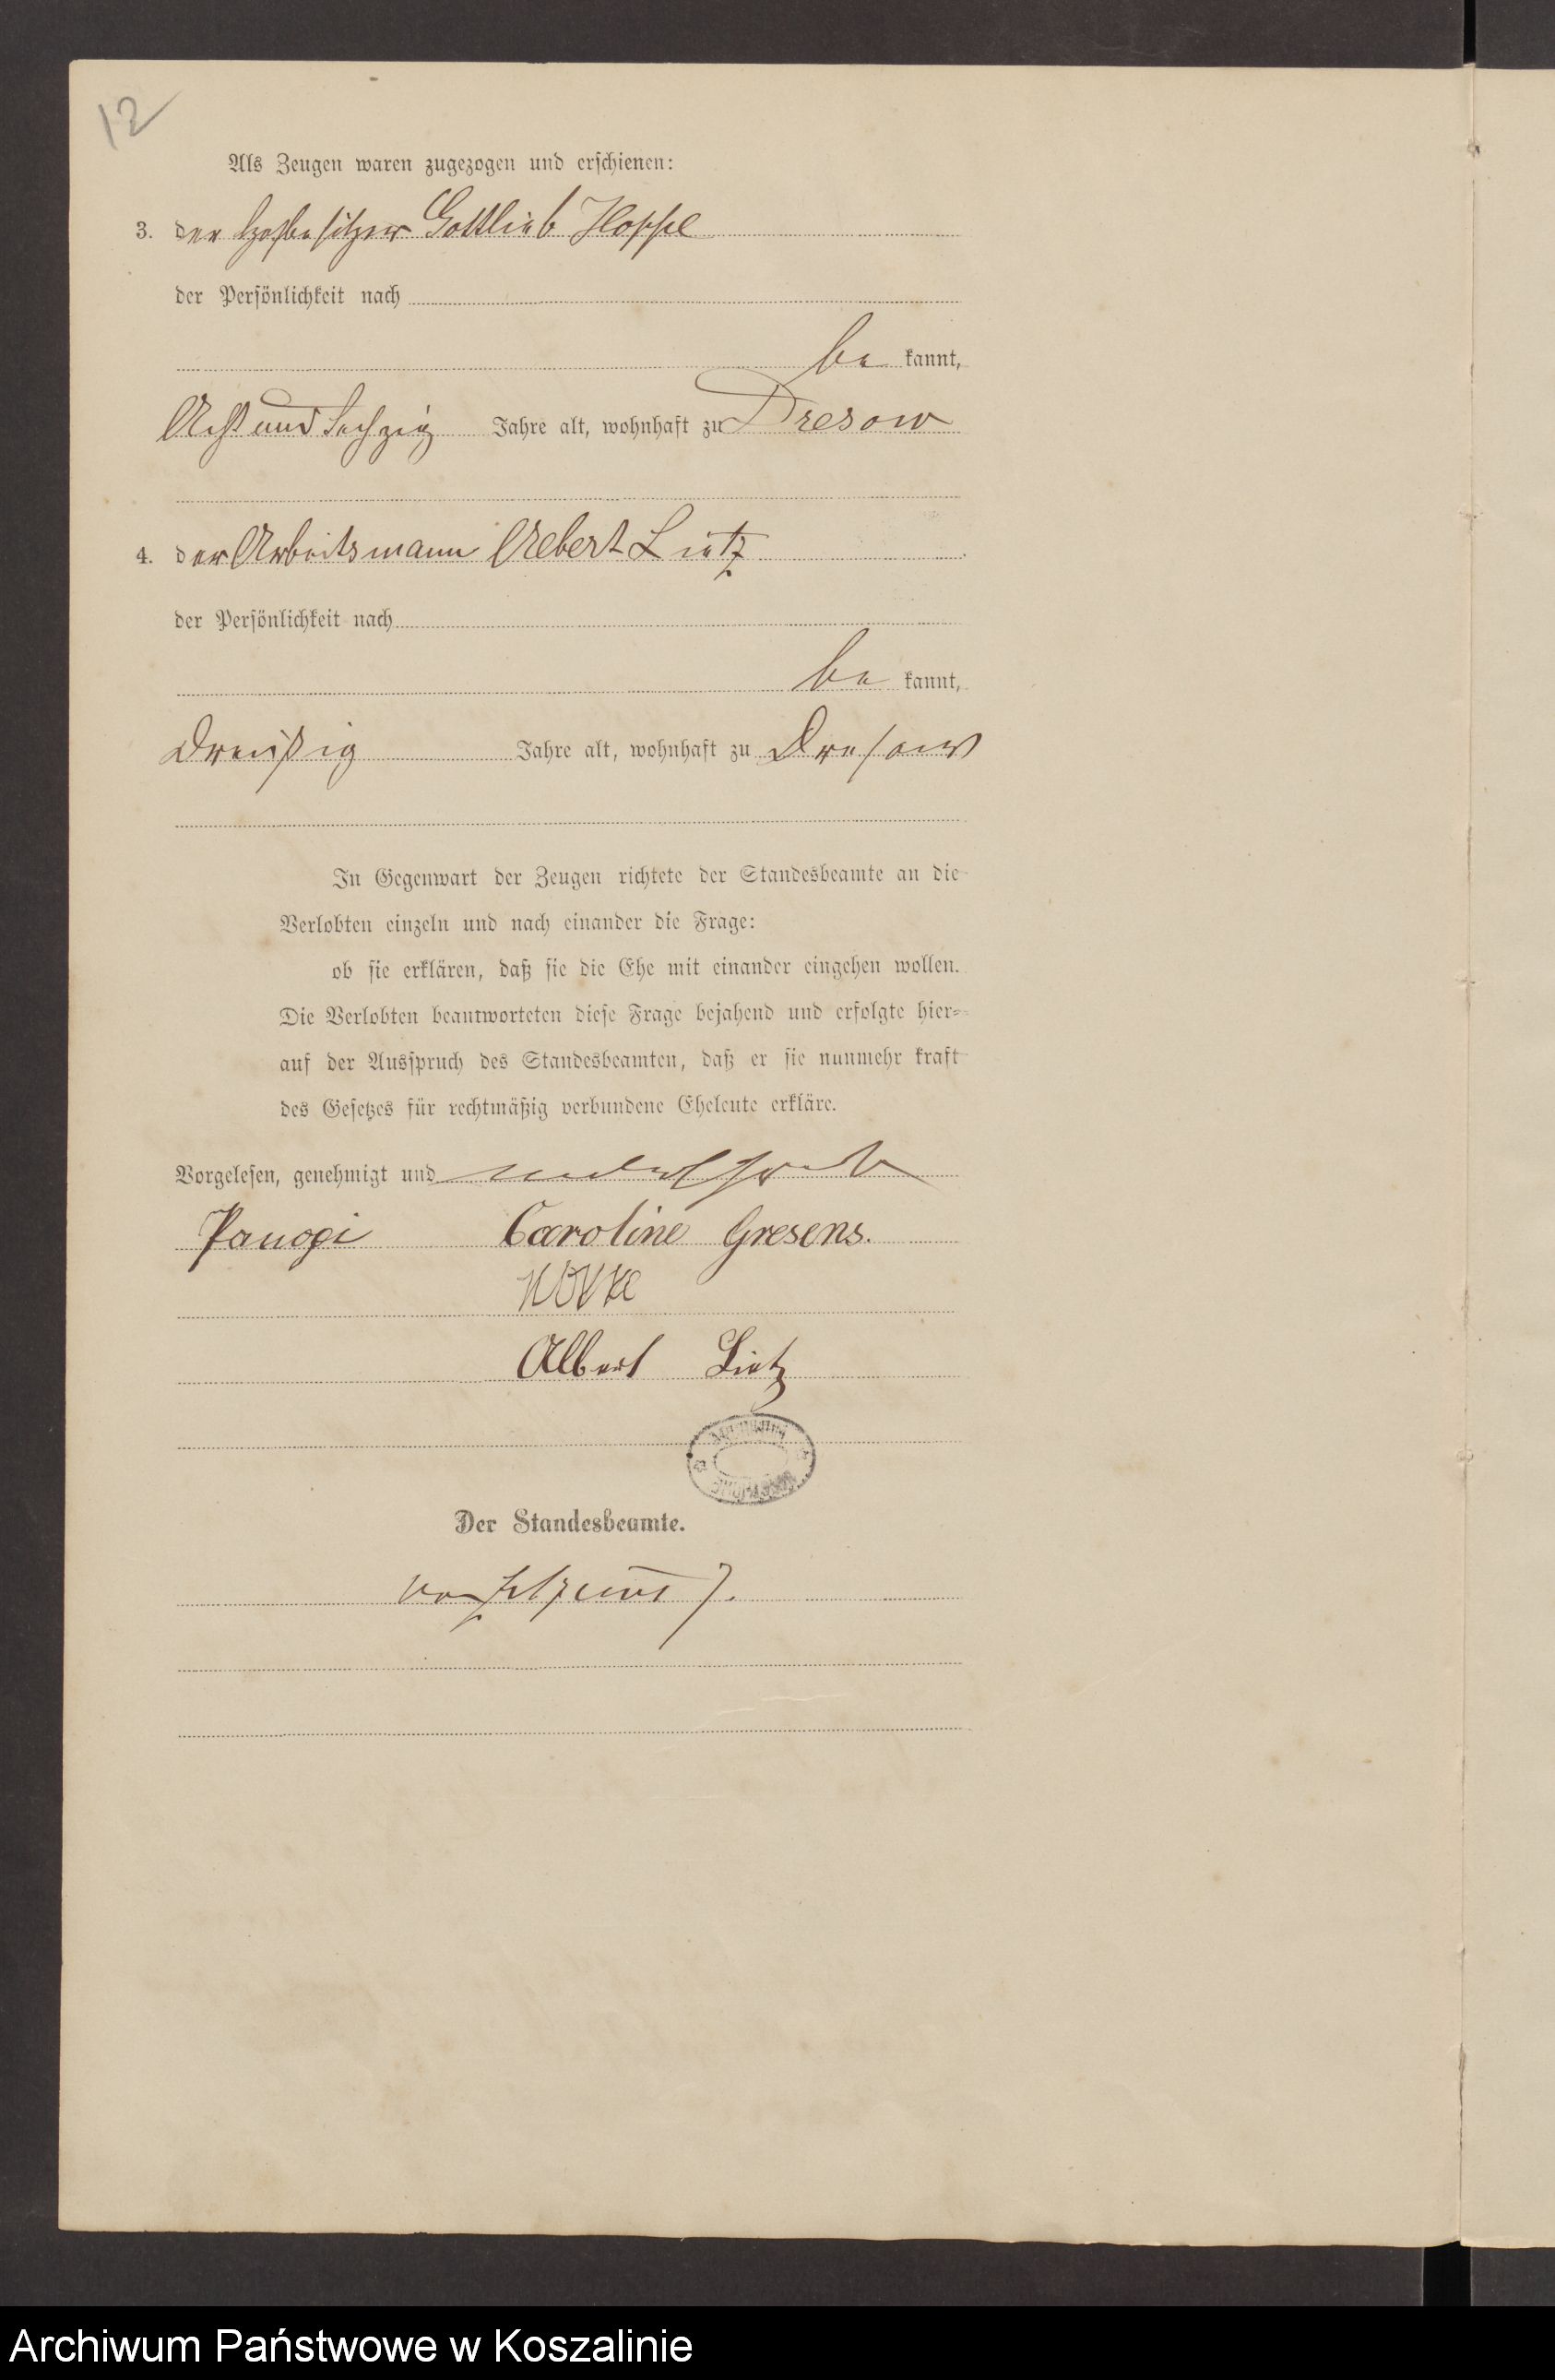 12
Als Zeugen waren zugezogen und erschienen:
3. der Hofbesitzer Gottlieb Hoppe
der Persönlichkeit nach
be kannt,
Acht und Sechzig Jahre alt, wohnhaft zu Dresow
4. der Arbeitsmann Albert Lietz
der Persönlichkeit nach
be kannt,
Dreißig Jahre alt, wohnhaft zu Dresow
In Gegenwart der Zeugen richtete der Standesbeamte an die
Verlobten einzeln und nach einander die Frage:
ob sie erklären, daß sie die Ehe mit einander eingehen wollen.
Die Verlobten beantworteten diese Frage bejahend und erfolgte hier-
auf der Ausspruch des Standesbeamten, daß er sie nunmehr kraft
des Gesetzes für rechtmäßig verbundene Eheleute erkläre.
Vorgelesen, genehmigt und
Caroline Gresens.
Albert Lietz
Der Standesbeamte.
Archiwum Państwowe w Koszalinie